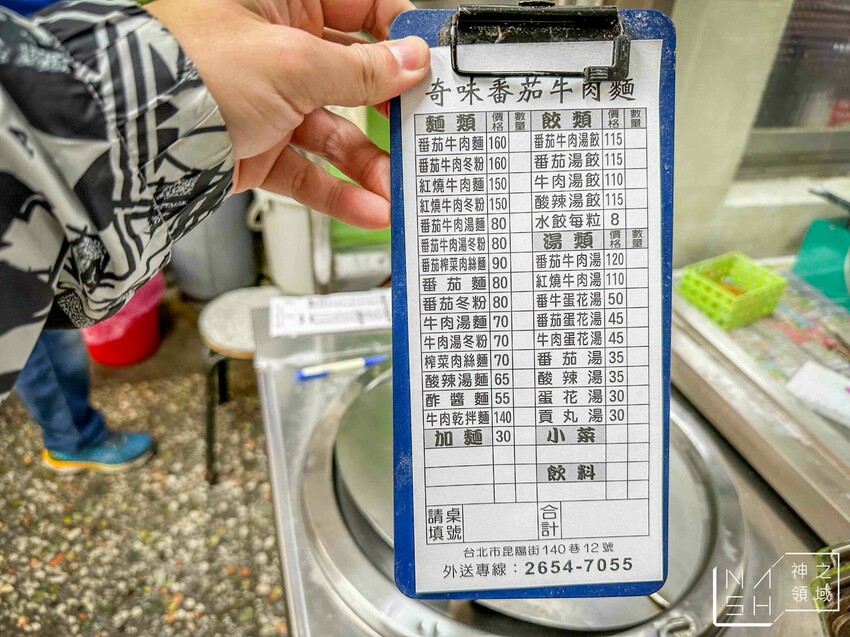 奇味番茄牛肉麵
麵類 價格 數量
番茄牛肉麵 160
番茄牛肉冬粉 160
紅燒牛肉麵 150
紅燒牛肉冬粉 150
番茄牛肉湯麵 80
番茄牛肉湯冬粉 80
番茄榨菜肉絲麵 90
番茄麵 80
番茄冬粉 80
牛肉湯麵 70
牛肉湯冬粉 70
榨菜肉絲麵 70
酸辣湯麵 65
酢醬麵 55
牛肉乾拌麵 140
加麵 30
餃類 價格 數量
番茄牛肉湯餃 115
番茄湯餃 115
牛肉湯餃 110
酸辣湯餃 115
水餃每粒 8
湯類 價格 數量
番茄牛肉湯 120
紅燒牛肉湯 110
番牛蛋花湯 50
番茄蛋花湯 45
牛肉蛋花湯 45
番茄湯 35
酸辣湯 35
蛋花湯 30
貢丸湯 30
小菜
飲料
請填桌號
合計
台北市昆陽街140巷12號
外送專線：2654-7055
NASH 神之領域